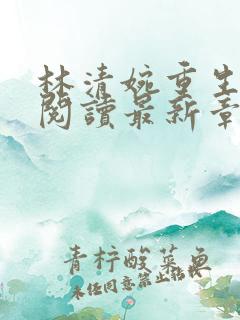 林清婉重生
閱讀最新章
青柠酸菜鱼
未任同意禁止转载